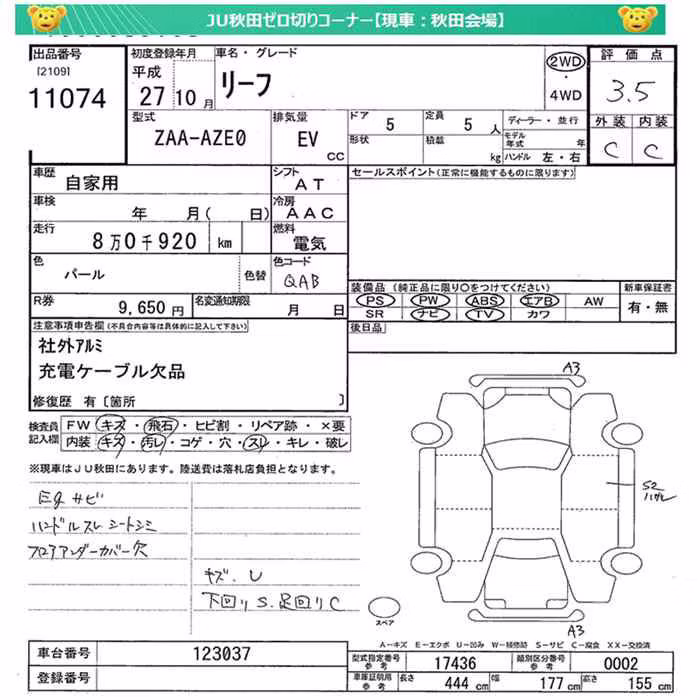 JU秋田ゼロ切りコーナー【現車：秋田会場】
出品番号
[2109]
11074
初度登録年月
平成
27 10 月
車名・グレード
リーフ
2WD
・
4WD
評価点
3.5
型式
ZAA-AZE0
排気量
EV
CC
ドア 5
定員 5 人
形状
積載 kg
ディーラー・並行
モデル年式 年
ハンドル 左・右
外装 内装
C C
車歴
自家用
シフト
AT
セールスポイント(正常に機能するものに限ります)
車検
年 月( 日)
冷房
AAC
走行
8万0千920 km
燃料
電気
色
パール
色替
色コード
QAB
装備品 (純正品に限り○をつけてください)
新車保証書
PS PW ABS エアB AW
有・無
SR ナビ TV カワ
R券
9,650円
名変通知期限
月 日
後日品
注意事項申告欄(不具合内容等は具体的に記入して下さい)
社外アルミ
充電ケーブル欠品
修復歴 有〔箇所 〕
検査員
記入欄
FW キズ・飛石・ヒビ割・リペア跡・×要
内装 キズ・汚レ・コゲ・穴・スレ・キレ・破レ
※現車はJU秋田にあります。陸送費は落札店負担となります。
Eg サビ
ハンドルスレ シートシミ
フロアアンダーカバー欠
キズ.U
下回りS.足回りC
A3
S2
ハガレ
A3
スペア
A－キズ E－エクボ U－凹み W－補修跡 S－サビ C－腐食 XX－交換済
車台番号
123037
型式指定番号
参考
17436
類別区分番号
参考
0002
登録番号
車庫証明用
参考
長さ 444 cm
幅 177 cm
高さ 155 cm